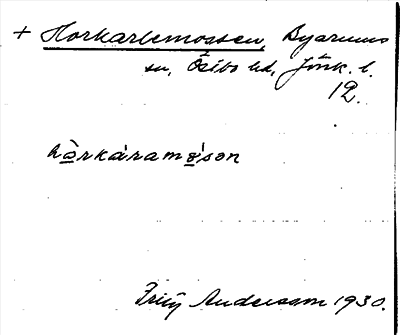 + Horkarlemossen, Byarums
sn, Östbo hd, Jönk. l.
12.
hòrkáramo̢sən
Andersson 1930.